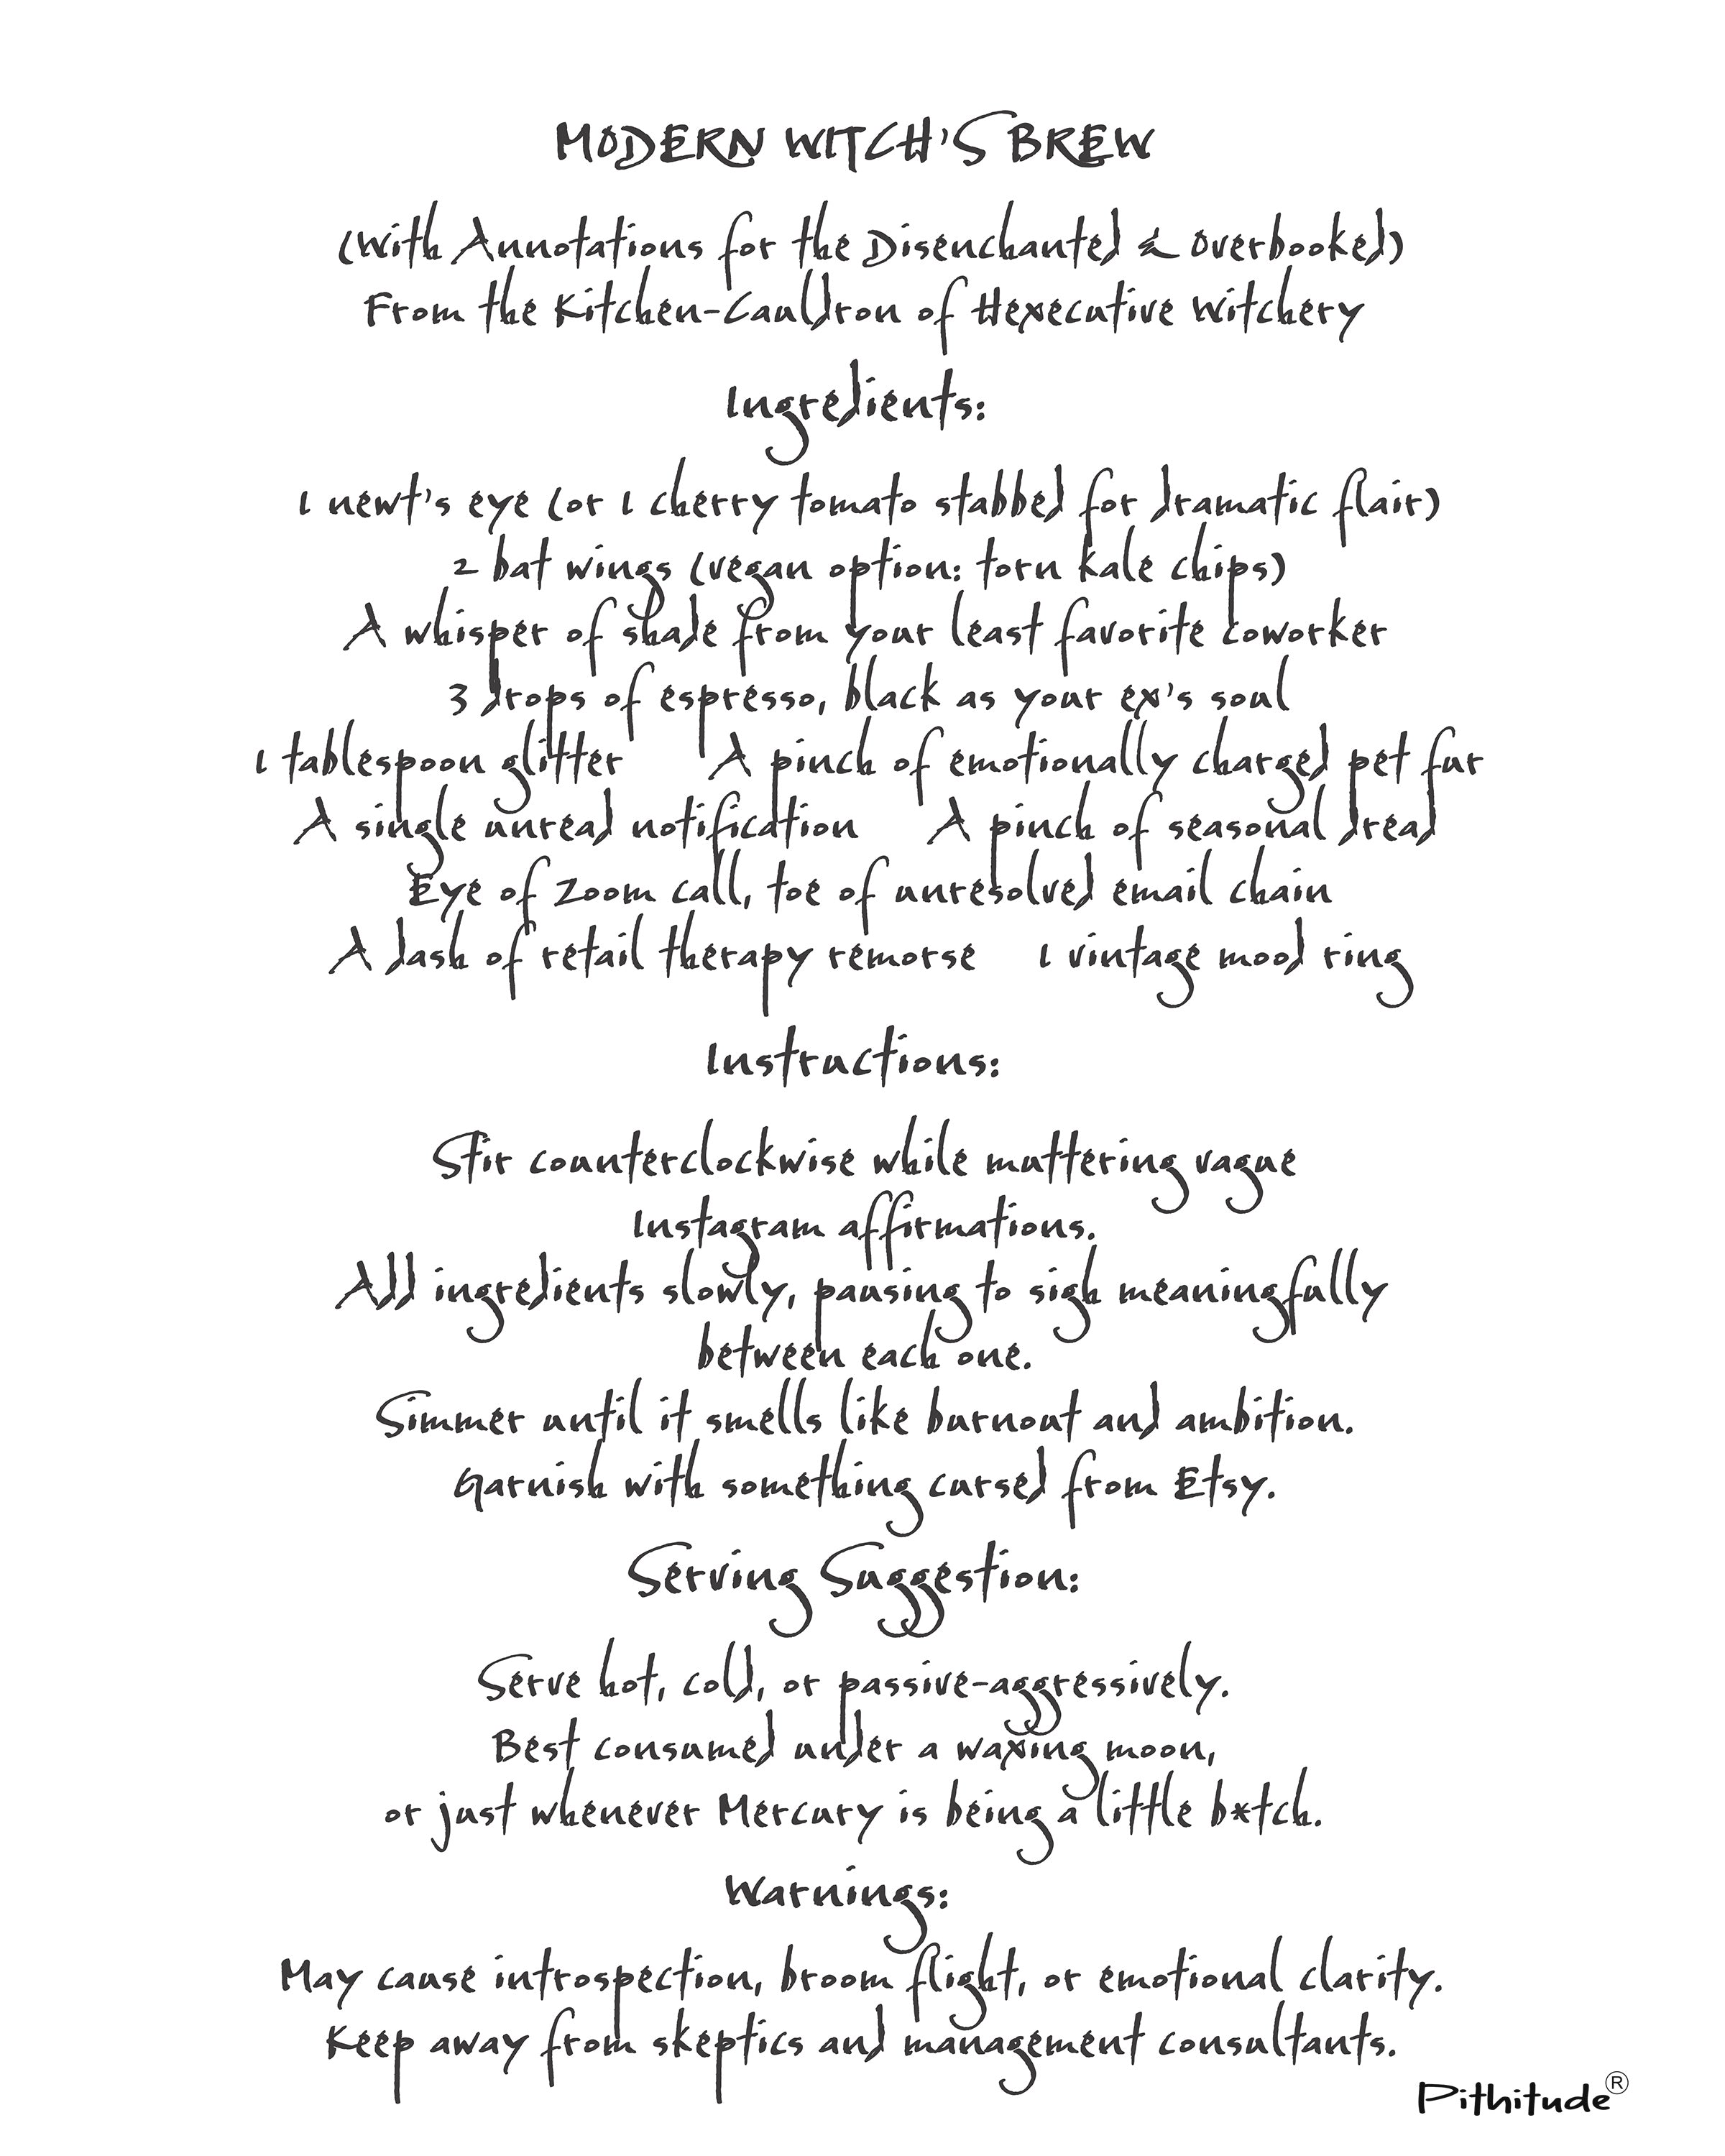 MODERN WITCH'S BREW
(With Annotations for the Disenchanted & Overbooked)
From the Kitchen-Cauldron of Hexecutive Witchery
Ingredients:
1 newt's eye (or 1 cherry tomato stabbed for dramatic flair)
2 bat wings (vegan option: torn kale chips)
A whisper of shade from your least favorite coworker
3 drops of espresso, black as your ex's soul
1 tablespoon glitter   A pinch of emotionally charged pet fur
A single unread notification   A pinch of seasonal dread
Eye of Zoom call, toe of unresolved email chain
A dash of retail therapy remorse   1 vintage mood ring
Instructions:
Stir counterclockwise while muttering vague
Instagram affirmations.
Add ingredients slowly, pausing to sigh meaningfully
between each one.
Simmer until it smells like burnout and ambition.
Garnish with something cursed from Etsy.
Serving Suggestion:
Serve hot, cold, or passive-aggressively.
Best consumed under a waxing moon,
or just whenever Mercury is being a little b*tch.
Warnings:
May cause introspection, broom flight, or emotional clarity.
Keep away from skeptics and management consultants.
Pithitude®